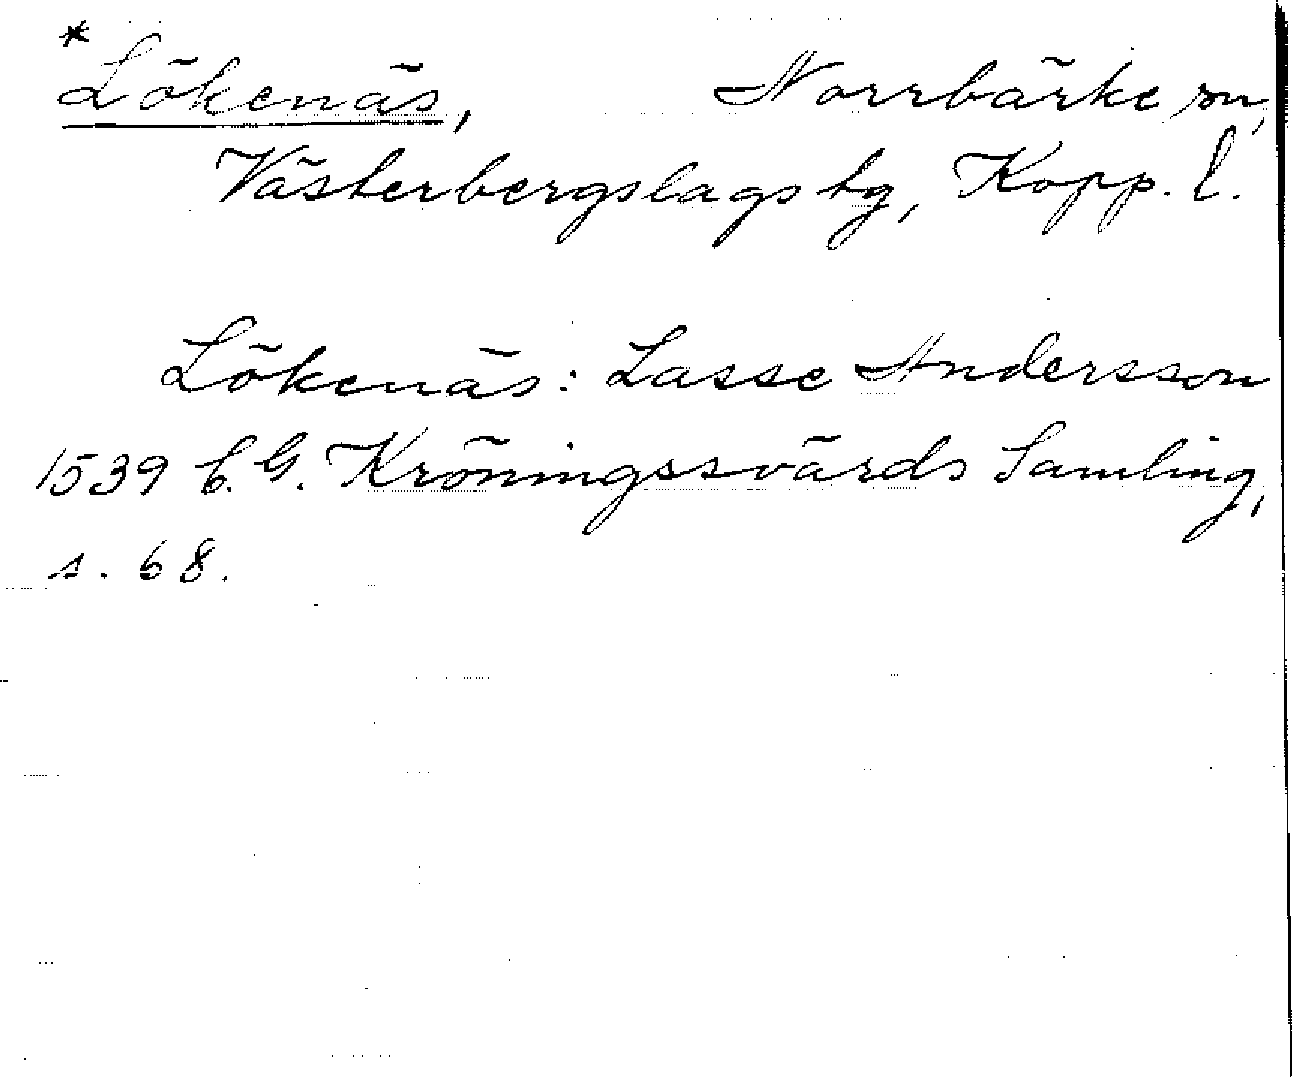 *Lökenäs, Norrbärke sn,
Västerbergslags tg, Kopp. l.
Lökenäs: Lasse Andersson
1539 C. G. Kröningssvärds Samling,
s. 68.